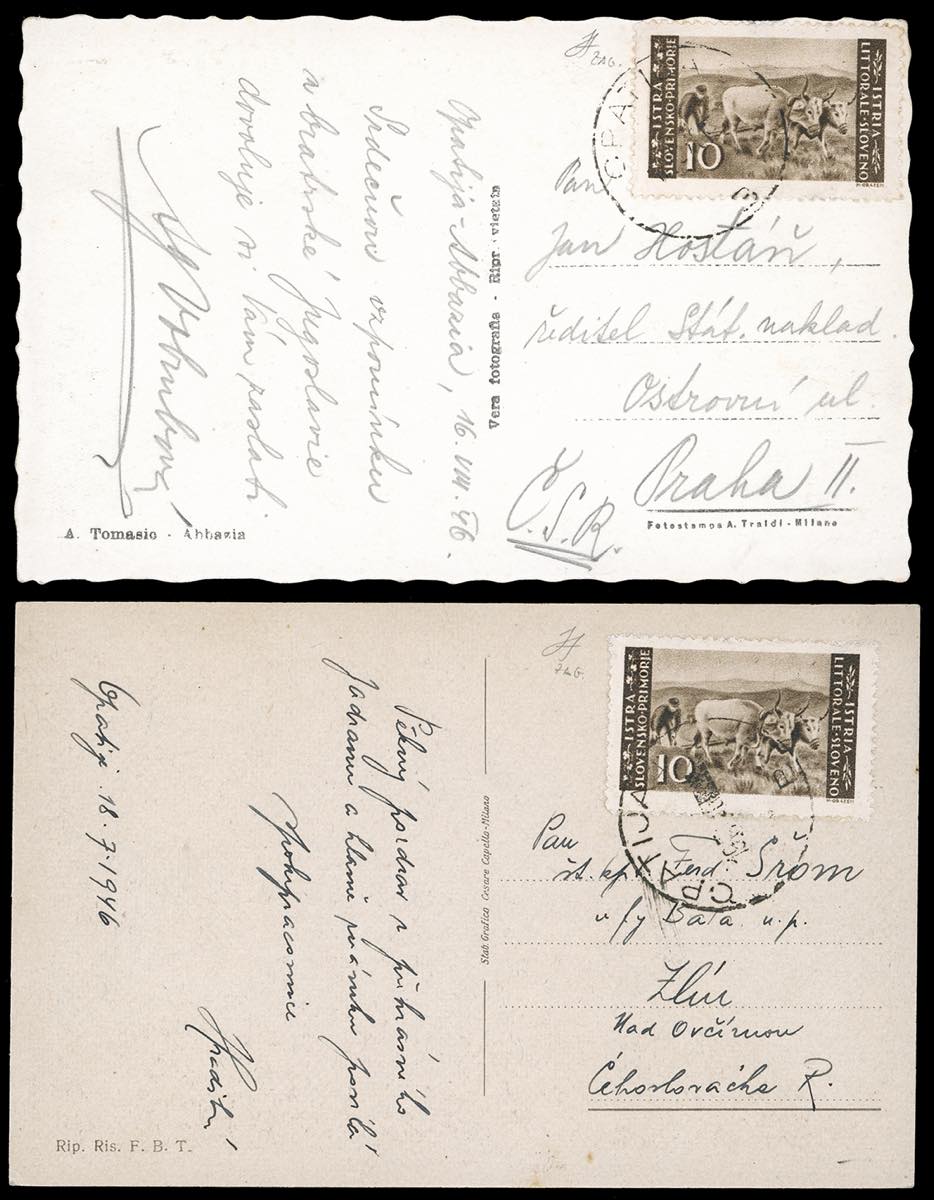 ZAG.
ISTRA
SLOVENSKO-PRIMORJE
ISTRIA
LITTORALE-SLOVENO
10
M·ORAŽEM
Opatija-Abbazia, 16.VIII.46.
Srdečnou vzpomínku
z bratrské Jugoslavie
dovoluje si Vám zaslati
Vera fotografia - Ripr. vietata
Pan
Jan Hostáň,
ředitel Stát. naklad.
Ostrovní ul.
Praha II.
Č.S.R.
A. Tomasic - Abbazia
Fotostampa A. Traldi - Milano
ZAG.
ISTRA
SLOVENSKO-PRIMORJE
ISTRIA
LITTORALE-SLOVENO
10
M·ORAŽEM
OPATIJA
Pěkný pozdrav z překrásného
Jadranu a hlavně posílá
spolupracovnice
Opatija 18.7.1946
Stab. Grafico Cesare Capello-Milano
Pan
Ferd. Šrom
u fy Baťa n.p.
Zlín
Nad Ovčírnou
Čehoslovačka R.
Rip. Ris. F. B. T.